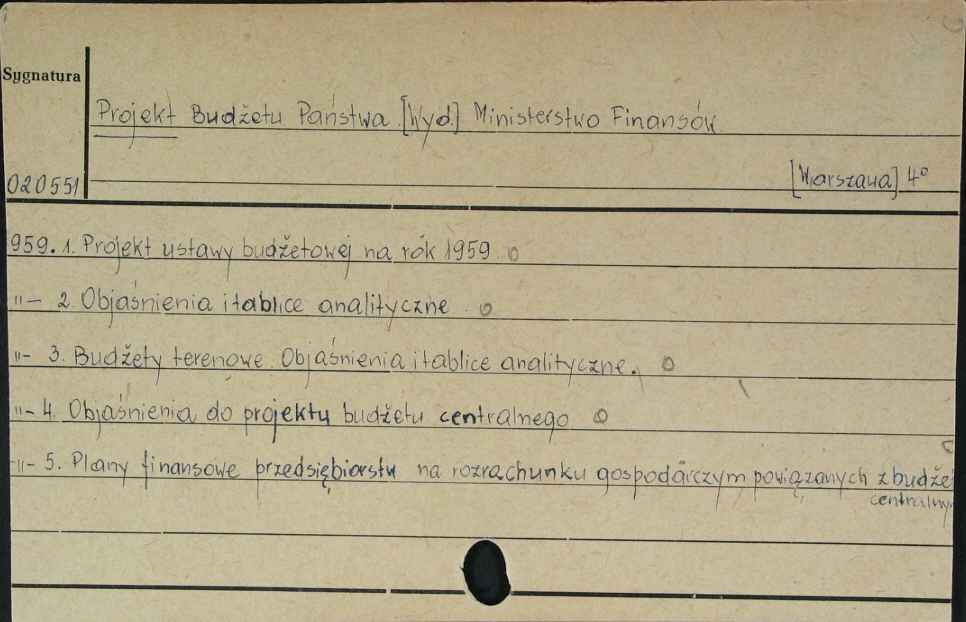 Sygnatura
Projekt Budżetu Państwa. [Wyd.] Ministerstwo Finansów
020551
[Warszawa] 4°
959. 1. Projekt ustawy budżetowej na rok 1959
"- 2. Objaśnienia i tablice analityczne.
"- 3. Budżety terenowe. Objaśnienia i tablice analityczne.
"- 4. Objaśnienia do projektu budżetu centralnego
-"- 5. Plany finansowe przedsiębiorstw na rozrachunku gospodarczym powiązanych z budże
centralny